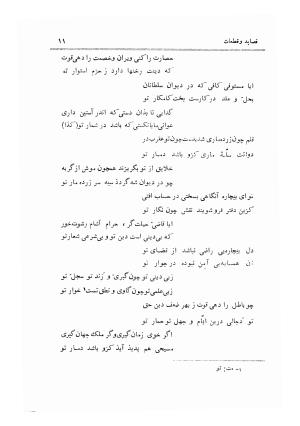 قصاید و قطعات ۱۱
مصارت را کنی ویران و خصمت را دهی قوت
که دینت رخنها دارد ز حزم استوار تو
ایا مستوفی کافی که در دیوان سلطانان
بحل و عقد در کارست بخت کامکار تو
گدایی تا بدان دستی که اندر آستین داری
عوانی تا بانگشتی که باشد در شمار تو (کذا)
قلم چون زرد ماری شد بدست چون تو عقرب در
دواتت سلهٔ ماری کزو باشد دمار تو
خلایق از تو بگریزند همچون موش از گربه
چو در دیوان شه گردد سیه سر زرده مار تو
تو ای بیچاره آنگاهی بسختی در حساب افتی
کزین دفتر فروشویند نقش چون نگار تو
ایا قاضی حیلت گر، حرام آشام رشوت خور
که بی‌دینی است دین تو و بی‌شرعی شعار تو
دل بیچاره‌یی راضی نباشد از قضای تو
زن همسایه‌یی آمن نبوده در جوار تو
زبی دینی تو چون گبری و زند تو سجل تو
زبی علمی تو چون گاوی و نطق تست خوار تو
چو باطل را دهی قوت ز بهر ضعف دین حق
تو دجالی درین ایام و جهل تو حمار تو
اگر خوی زمان گیری وگر ملک جهان گیری
مسیحی هم پدید آید کزو باشد دمار تو